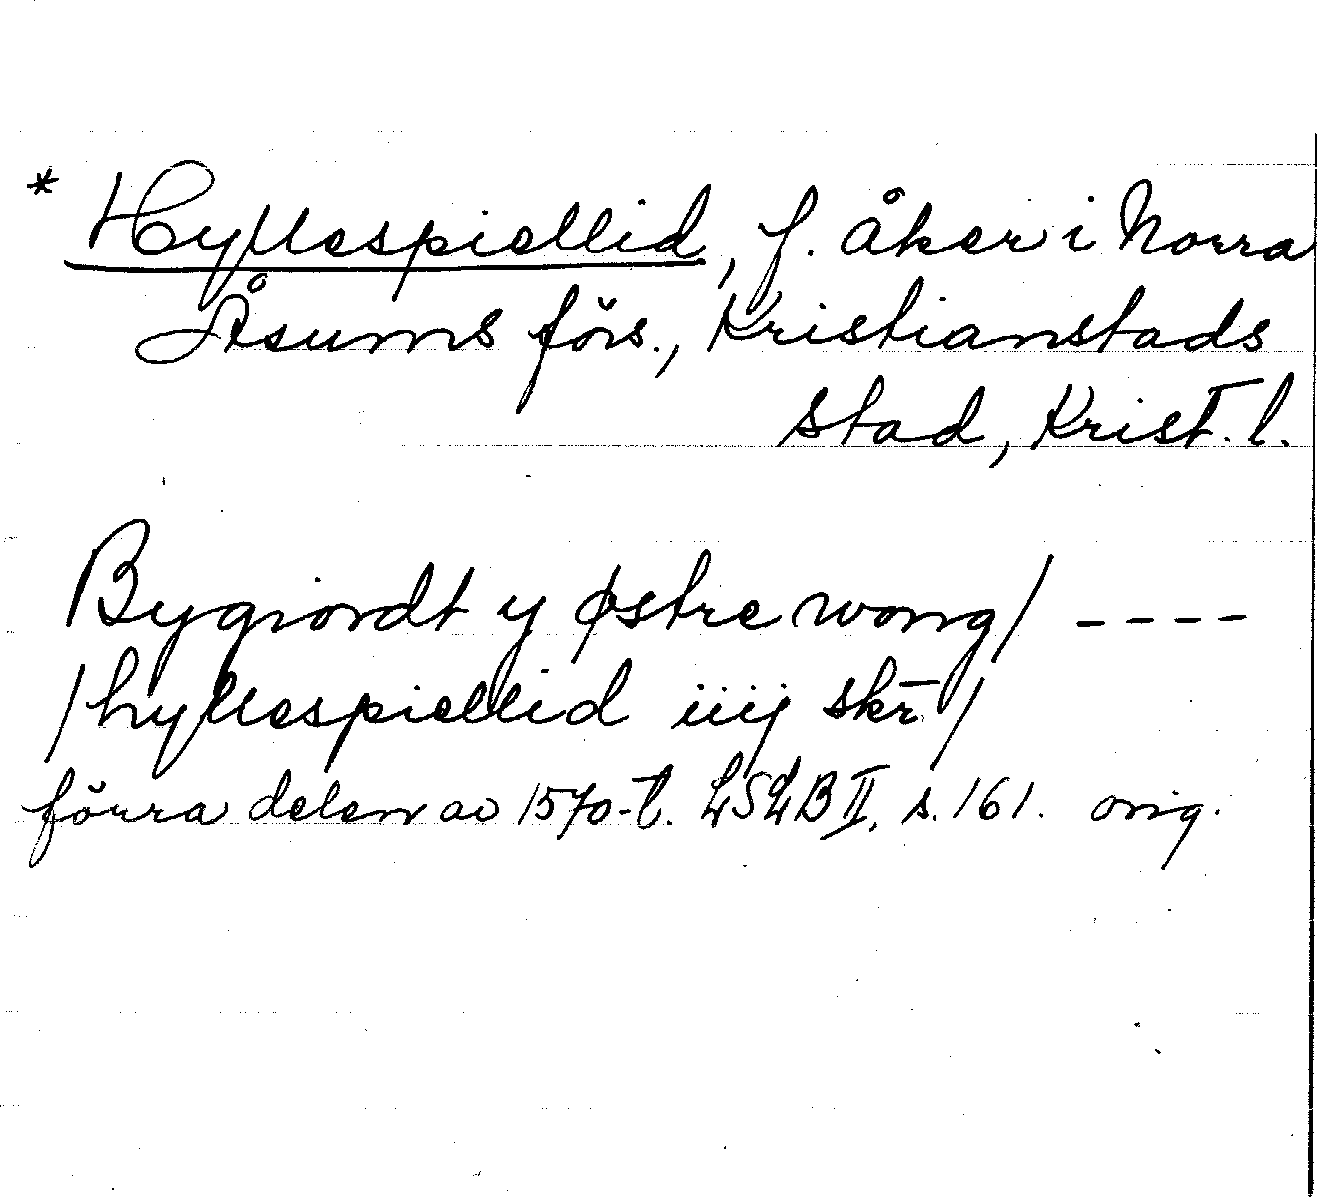 * Hyllespiellid, f. åker i Norra
Åsums förs., Kristianstads
stad, Krist. l.
Bygiordt y østre wong/ ----
/hyllespiellid iiij skr̄/
förra delen av 1570-t. LSLB II, s. 161. orig.